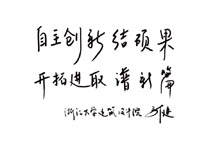 自主创新结硕果
开拓进取谱新篇
浙江大学建筑设计院